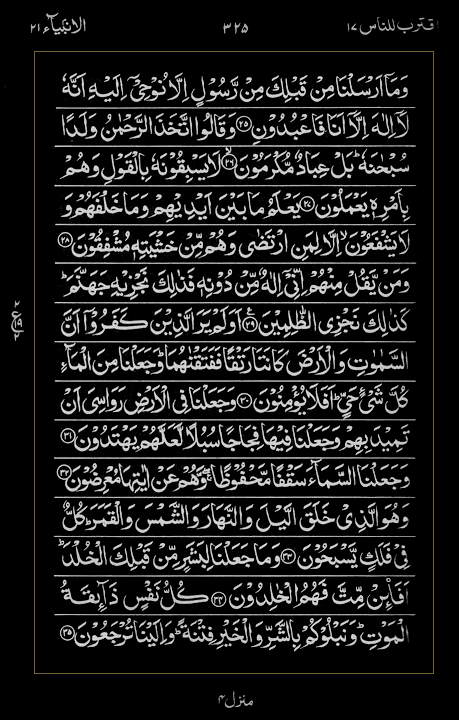 اقترب للناس ١٧ ٣٢٥ الانبيآء ٢١
وَمَاۤ اَرْسَلْنَا مِنْ قَبْلِكَ مِنْ رَّسُوْلٍ اِلَّا نُوْحِیْۤ اِلَیْهِ اَنَّهٗ
لَاۤ اِلٰهَ اِلَّاۤ اَنَا فَاعْبُدُوْنِ ﴿۲۵﴾ وَ قَالُوا اتَّخَذَ الرَّحْمٰنُ وَلَدًا
سُبْحٰنَهٗ ؕ بَلْ عِبَادٌ مُّكْرَمُوْنَ ﴿۲۶﴾ ۙ لَا یَسْبِقُوْنَهٗ بِالْقَوْلِ وَ هُمْ
بِاَمْرِهٖ یَعْمَلُوْنَ ﴿۲۷﴾ یَعْلَمُ مَا بَیْنَ اَیْدِیْهِمْ وَ مَا خَلْفَهُمْ وَ
لَا یَشْفَعُوْنَ ۙ اِلَّا لِمَنِ ارْتَضٰی وَ هُمْ مِّنْ خَشْیَتِهٖ مُشْفِقُوْنَ ﴿۲۸﴾
وَ مَنْ یَّقُلْ مِنْهُمْ اِنِّیْۤ اِلٰهٌ مِّنْ دُوْنِهٖ فَذٰلِكَ نَجْزِیْهِ جَهَنَّمَ ؕ
كَذٰلِكَ نَجْزِی الظّٰلِمِیْنَ ﴿۲۹﴾ اَوَ لَمْ یَرَ الَّذِیْنَ كَفَرُوْۤا اَنَّ
السَّمٰوٰتِ وَ الْاَرْضَ كَانَتَا رَتْقًا فَفَتَقْنٰهُمَا ؕ وَ جَعَلْنَا مِنَ الْمَآءِ
كُلَّ شَیْءٍ حَیٍّ ؕ اَفَلَا یُؤْمِنُوْنَ ﴿۳۰﴾ وَ جَعَلْنَا فِی الْاَرْضِ رَوَاسِیَ اَنْ
تَمِیْدَ بِهِمْ وَ جَعَلْنَا فِیْهَا فِجَاجًا سُبُلًا لَّعَلَّهُمْ یَهْتَدُوْنَ ﴿۳۱﴾
وَ جَعَلْنَا السَّمَآءَ سَقْفًا مَّحْفُوْظًا ۖۚ وَّ هُمْ عَنْ اٰیٰتِهَا مُعْرِضُوْنَ ﴿۳۲﴾
وَ هُوَ الَّذِیْ خَلَقَ الَّیْلَ وَ النَّهَارَ وَ الشَّمْسَ وَ الْقَمَرَ ؕ كُلٌّ
فِیْ فَلَكٍ یَّسْبَحُوْنَ ﴿۳۳﴾ وَ مَا جَعَلْنَا لِبَشَرٍ مِّنْ قَبْلِكَ الْخُلْدَ ؕ
اَفَا۠ئِنْ مِّتَّ فَهُمُ الْخٰلِدُوْنَ ﴿۳۴﴾ كُلُّ نَفْسٍ ذَآئِقَةُ
الْمَوْتِ ؕ وَ نَبْلُوْكُمْ بِالشَّرِّ وَ الْخَیْرِ فِتْنَةً ؕ وَ اِلَیْنَا تُرْجَعُوْنَ ﴿۳۵﴾
٢
ع
١٩
٢
منزل ٤